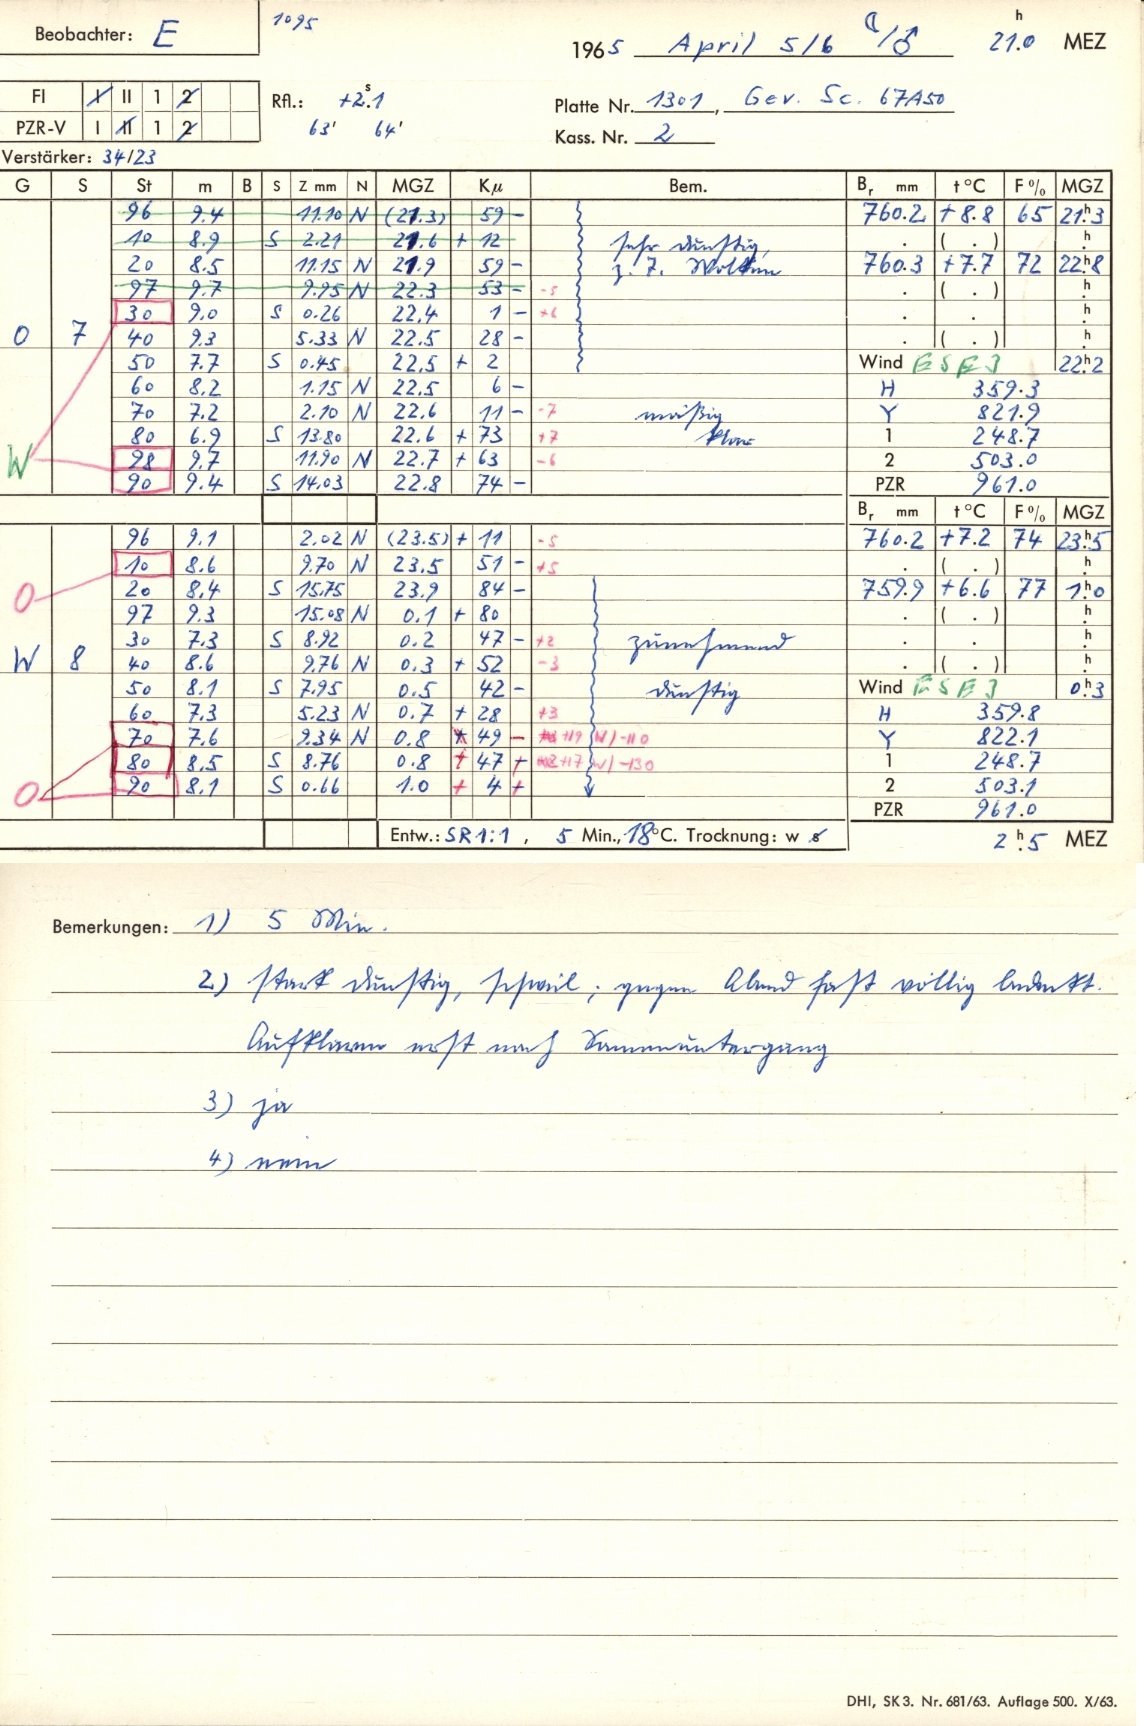 Beobachter: E
1095
1965 April 5/6 ☾/♂
21.0 h MEZ
FI I II 1 2
PZR-V I II 1 2
Rfl.: +2.1 s
63' 64'
Platte Nr. 1301, Gev. Sc. 67A50
Kass. Nr. 2
Verstärker: 34/23
G S St m B S Z mm N MGZ Kμ Bem. Br mm t °C F % MGZ
96 9.4 11.10 N (21.3) 59 - 760.2 +8.8 65 21 h 3
10 8.9 S 2.21 21.6 + 12 sehr dunstig, . ( . ) h
20 8.5 11.15 N 21.9 59 - z. T. Wolken 760.3 +7.7 72 22 h 8
97 9.7 9.95 N 22.3 53 - -5 . ( . ) h
30 9.0 S 0.26 22.4 1 - +6 . . h
O 7 40 9.3 5.33 N 22.5 28 - . ( . ) h
50 7.7 S 0.45 22.5 + 2 Wind ESE 3 22 h 2
60 8.2 1.15 N 22.5 6 - H 359.3
70 7.2 2.10 N 22.6 11 - -7 mäßig Y 821.9
80 6.9 S 13.80 22.6 + 73 +7 klar 1 248.7
W 98 9.7 11.90 N 22.7 + 63 -6 2 503.0
90 9.4 S 14.03 22.8 74 - PZR 961.0
Br mm t °C F % MGZ
96 9.1 2.02 N (23.5) + 11 -5 760.2 +7.2 74 23 h 5
10 8.6 9.70 N 23.5 51 - +5 . ( . ) h
O 20 8.4 S 15.75 23.9 84 - 759.9 +6.6 77 1 h 0
97 9.3 15.08 N 0.1 + 80 . ( . ) h
30 7.3 S 8.92 0.2 47 - +2 zunehmend . . h
W 8 40 8.6 9.76 N 0.3 + 52 -3 . ( . ) h
50 8.1 S 7.95 0.5 42 - dunstig Wind ESE 3 0 h 3
60 7.3 5.23 N 0.7 + 28 +3 H 359.8
70 7.6 9.34 N 0.8 49 - +19 W/-110 Y 822.1
80 8.5 S 8.76 0.8 + 47 + +17 W/-130 1 248.7
O 90 8.1 S 0.66 1.0 + 4 + 2 503.1
PZR 961.0
Entw.: SR 1:1, 5 Min., 18 °C. Trocknung: w s
2 h 5 MEZ
Bemerkungen: 1) 5 Min.
2) stark dunstig, schwül; gegen Abend fast völlig bedeckt.
Aufklaren erst nach Sonnenuntergang
3) ja
4) nein
DHI, SK 3. Nr. 681/63. Auflage 500. X/63.